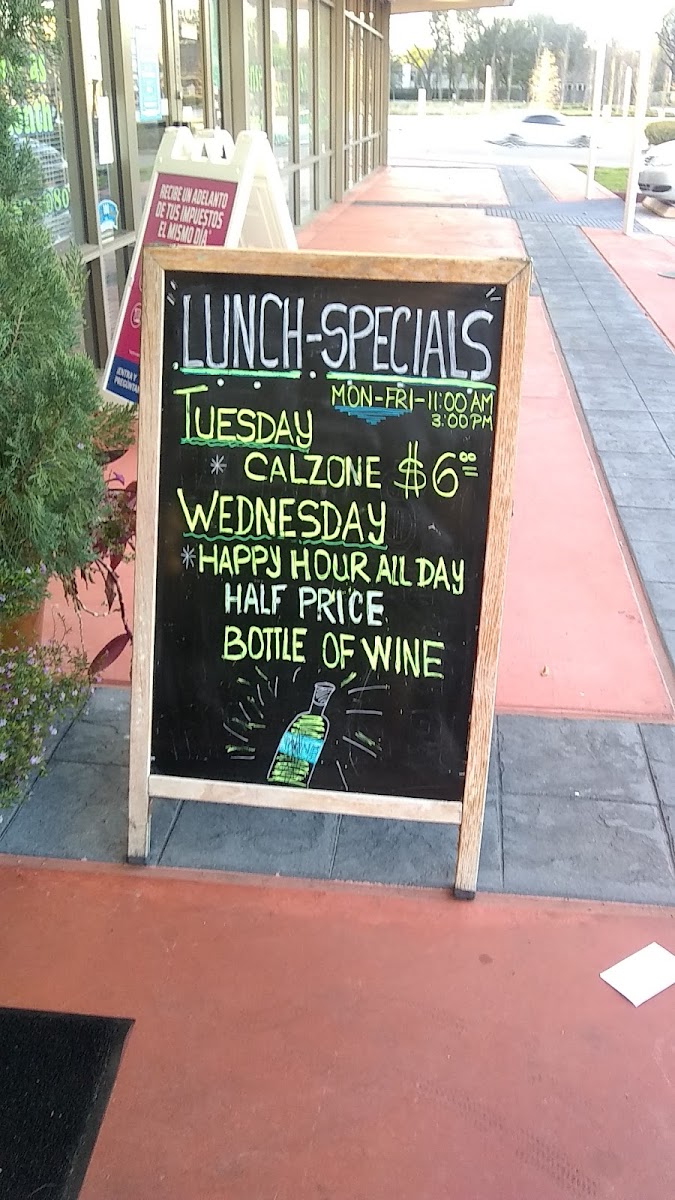 RECIBE UN ADELANTO
DE TUS IMPUESTOS
EL MISMO DÍA*
¡ENTRA Y
PREGÚNTANOS
LUNCH-SPECIALS
MON-FRI-11:00 AM
3:00 PM
TUESDAY
* CALZONE $6.00
WEDNESDAY
*HAPPY HOUR ALL DAY
HALF PRICE
BOTTLE OF WINE
WINE